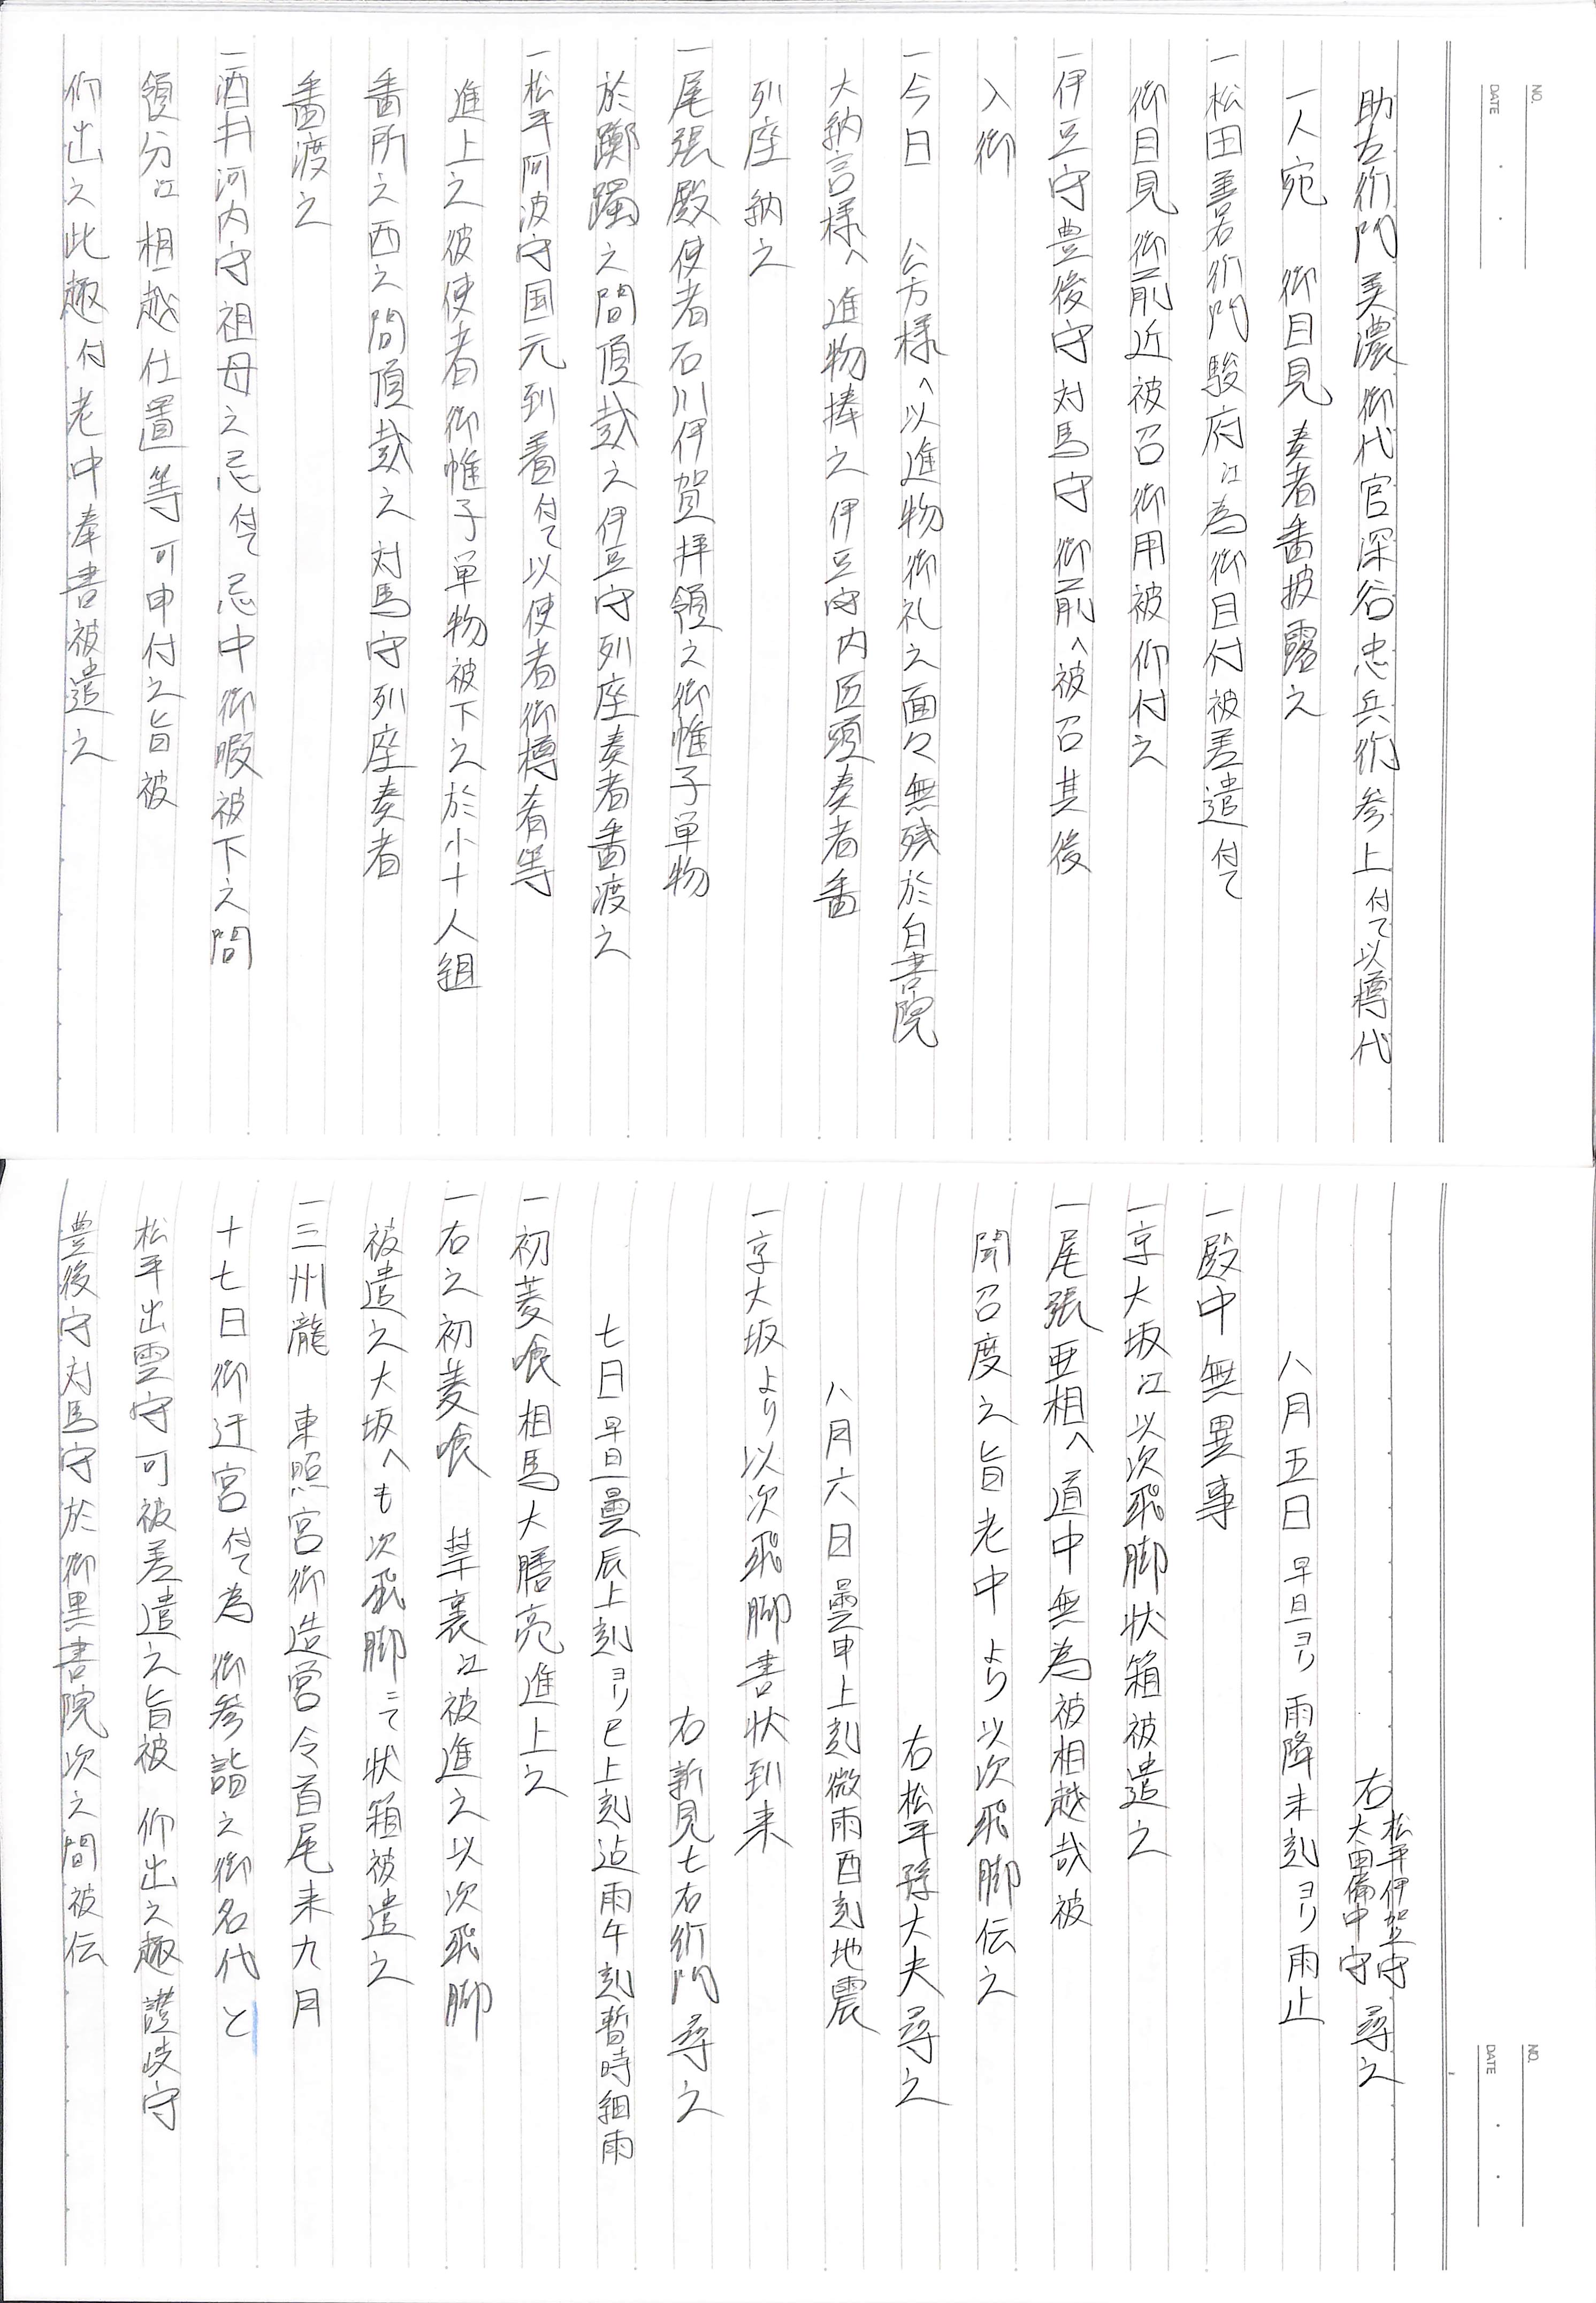 NO.
DATE
助左衛門美濃御代官深谷忠兵衛参上付て以樽代
一人宛　御目見奏者番披露之
一松田善右衛門駿府江為御目付被差遣付て
御目見御前近被召御用被仰付之
伊豆守豊後守対馬守御前へ被召其後
入御
一今日　公方様へ以進物御礼之面々無残於白書院
大納言様へ進物捧之伊豆守内匠頭奏者番
列座納之
一尾張殿使者石川伊賀拝領之御帷子単物
於躑躅之間頂戴之伊豆守列座奏者番渡之
一松平阿波守国元到着付て以使者御樽肴等
進上之彼使者御帷子単物被下之於小十人組
番所之西之間頂戴之対馬守列座奏者
番渡之
一酒井河内守祖母之忌付て忌中御暇被下之間
領分江相越仕置等可申付之旨被
仰出之此趣付老中奉書被遣之
NO.
DATE
右松平伊賀守太田備中守尋之
八月五日早旦ヨリ雨降未刻ヨリ雨止
一殿中無異事
一京大坂江以次飛脚状箱被遣之
一尾張亜相へ道中無為被相越哉被
聞召度之旨老中より以次飛脚伝之
右松平孫大夫尋之
八月六日曇申上刻微雨酉刻地震
一京大坂より以次飛脚書状到来
右新見七右衛門尋之
七日早旦曇辰上刻ヨリ巳上刻迠雨午刻暫時細雨
一初菱喰相馬大膳亮進上之
一右之初菱喰　禁裏江被進之以次飛脚
被遣之大坂へも次飛脚ニて状箱被遣之
一三州瀧　東照宮御造営令首尾来九月
十七日御迂宮付て為御参詣之御名代と
松平出雲守可被差遣之旨被　仰出之趣讃岐守
豊後守対馬守於御黒書院次之間被伝